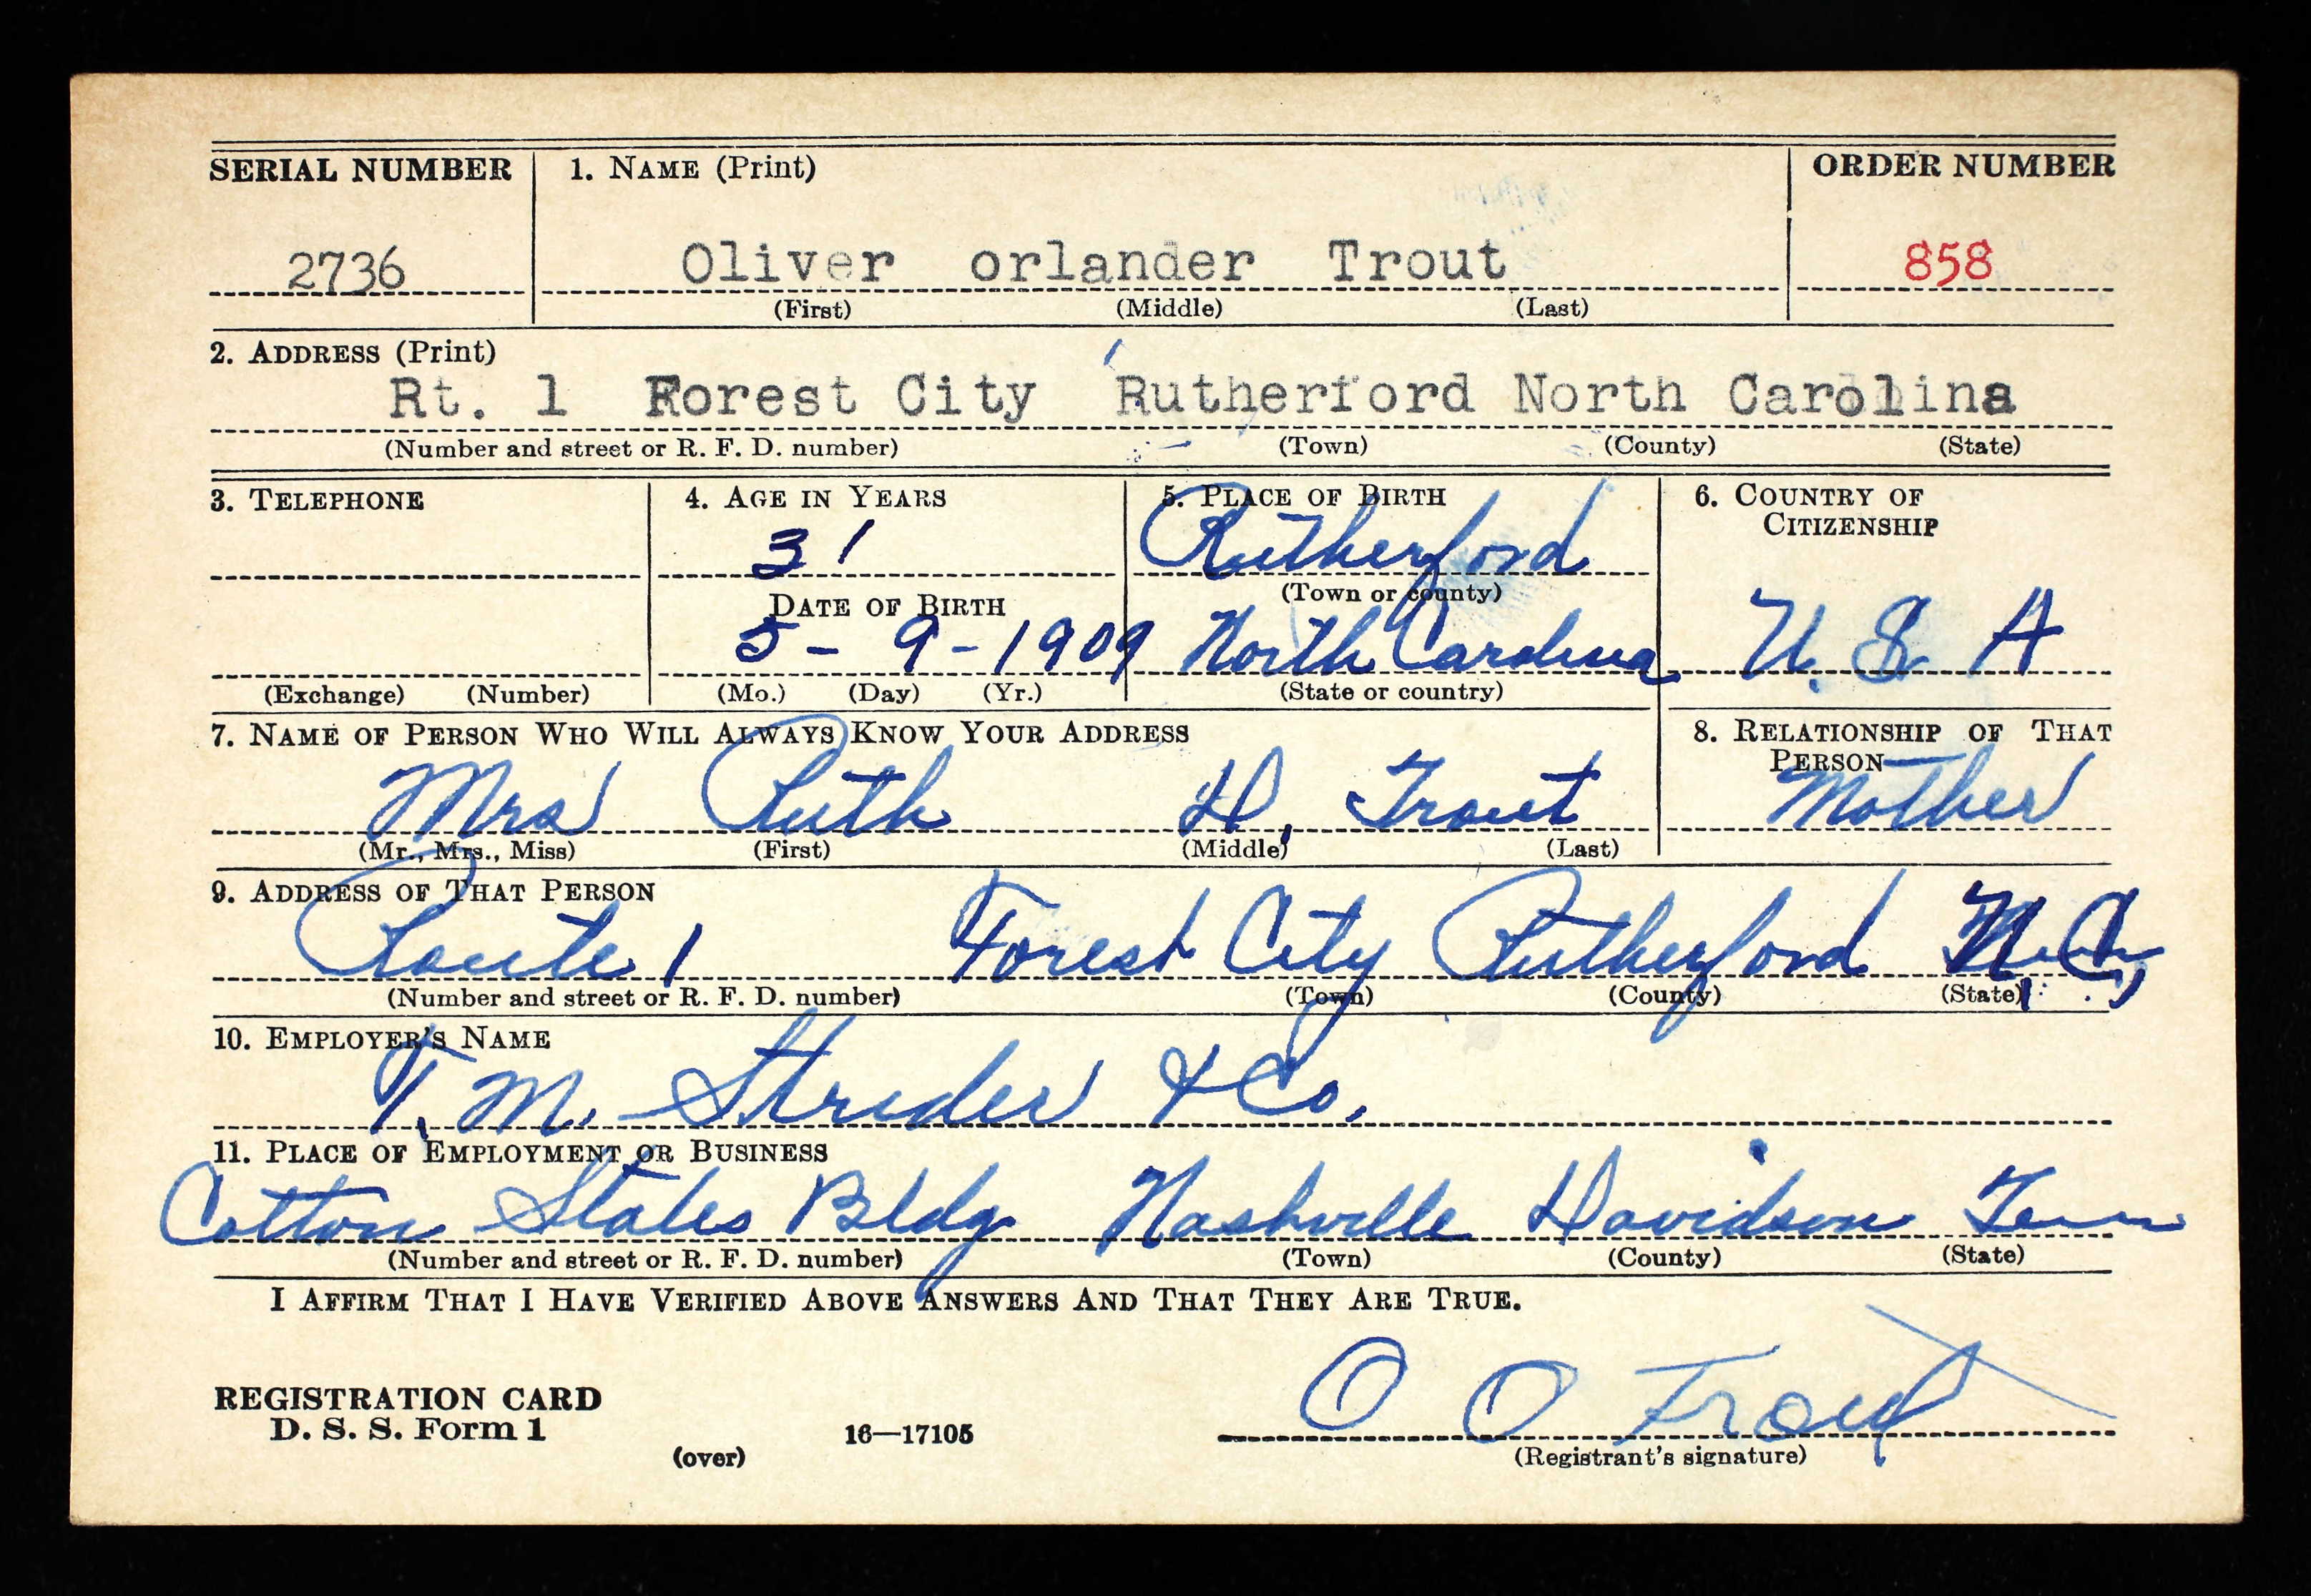 SERIAL NUMBER 1. NAME (Print) ORDER NUMBER
2736 Oliver orlander Trout 858
(First) (Middle) (Last)
2. ADDRESS (Print)
Rt. 1 Forest City Rutherford North Carolina
(Number and street or R. F. D. number) (Town) (County) (State)
3. TELEPHONE 4. AGE IN YEARS 5. PLACE OF BIRTH 6. COUNTRY OF
CITIZENSHIP
31 Rutherford
DATE OF BIRTH (Town or county)
5 - 9 - 1909 North Carolina U. S A
(Exchange) (Number) (Mo.) (Day) (Yr.) (State or country)
7. NAME OF PERSON WHO WILL ALWAYS KNOW YOUR ADDRESS 8. RELATIONSHIP OF THAT
PERSON
Mrs Ruth H. Trout Mother
(Mr., Mrs., Miss) (First) (Middle) (Last)
9. ADDRESS OF THAT PERSON
Route 1 Forest City Rutherford N.C,
(Number and street or R. F. D. number) (Town) (County) (State)
10. EMPLOYER'S NAME
T. M. Strider & Co.
11. PLACE OF EMPLOYMENT OR BUSINESS
Cotton States Bldg Nashville Davidson Tenn
(Number and street or R. F. D. number) (Town) (County) (State)
I AFFIRM THAT I HAVE VERIFIED ABOVE ANSWERS AND THAT THEY ARE TRUE.
O O Trout
REGISTRATION CARD
D. S. S. Form 1 16—17105
(over) (Registrant's signature)